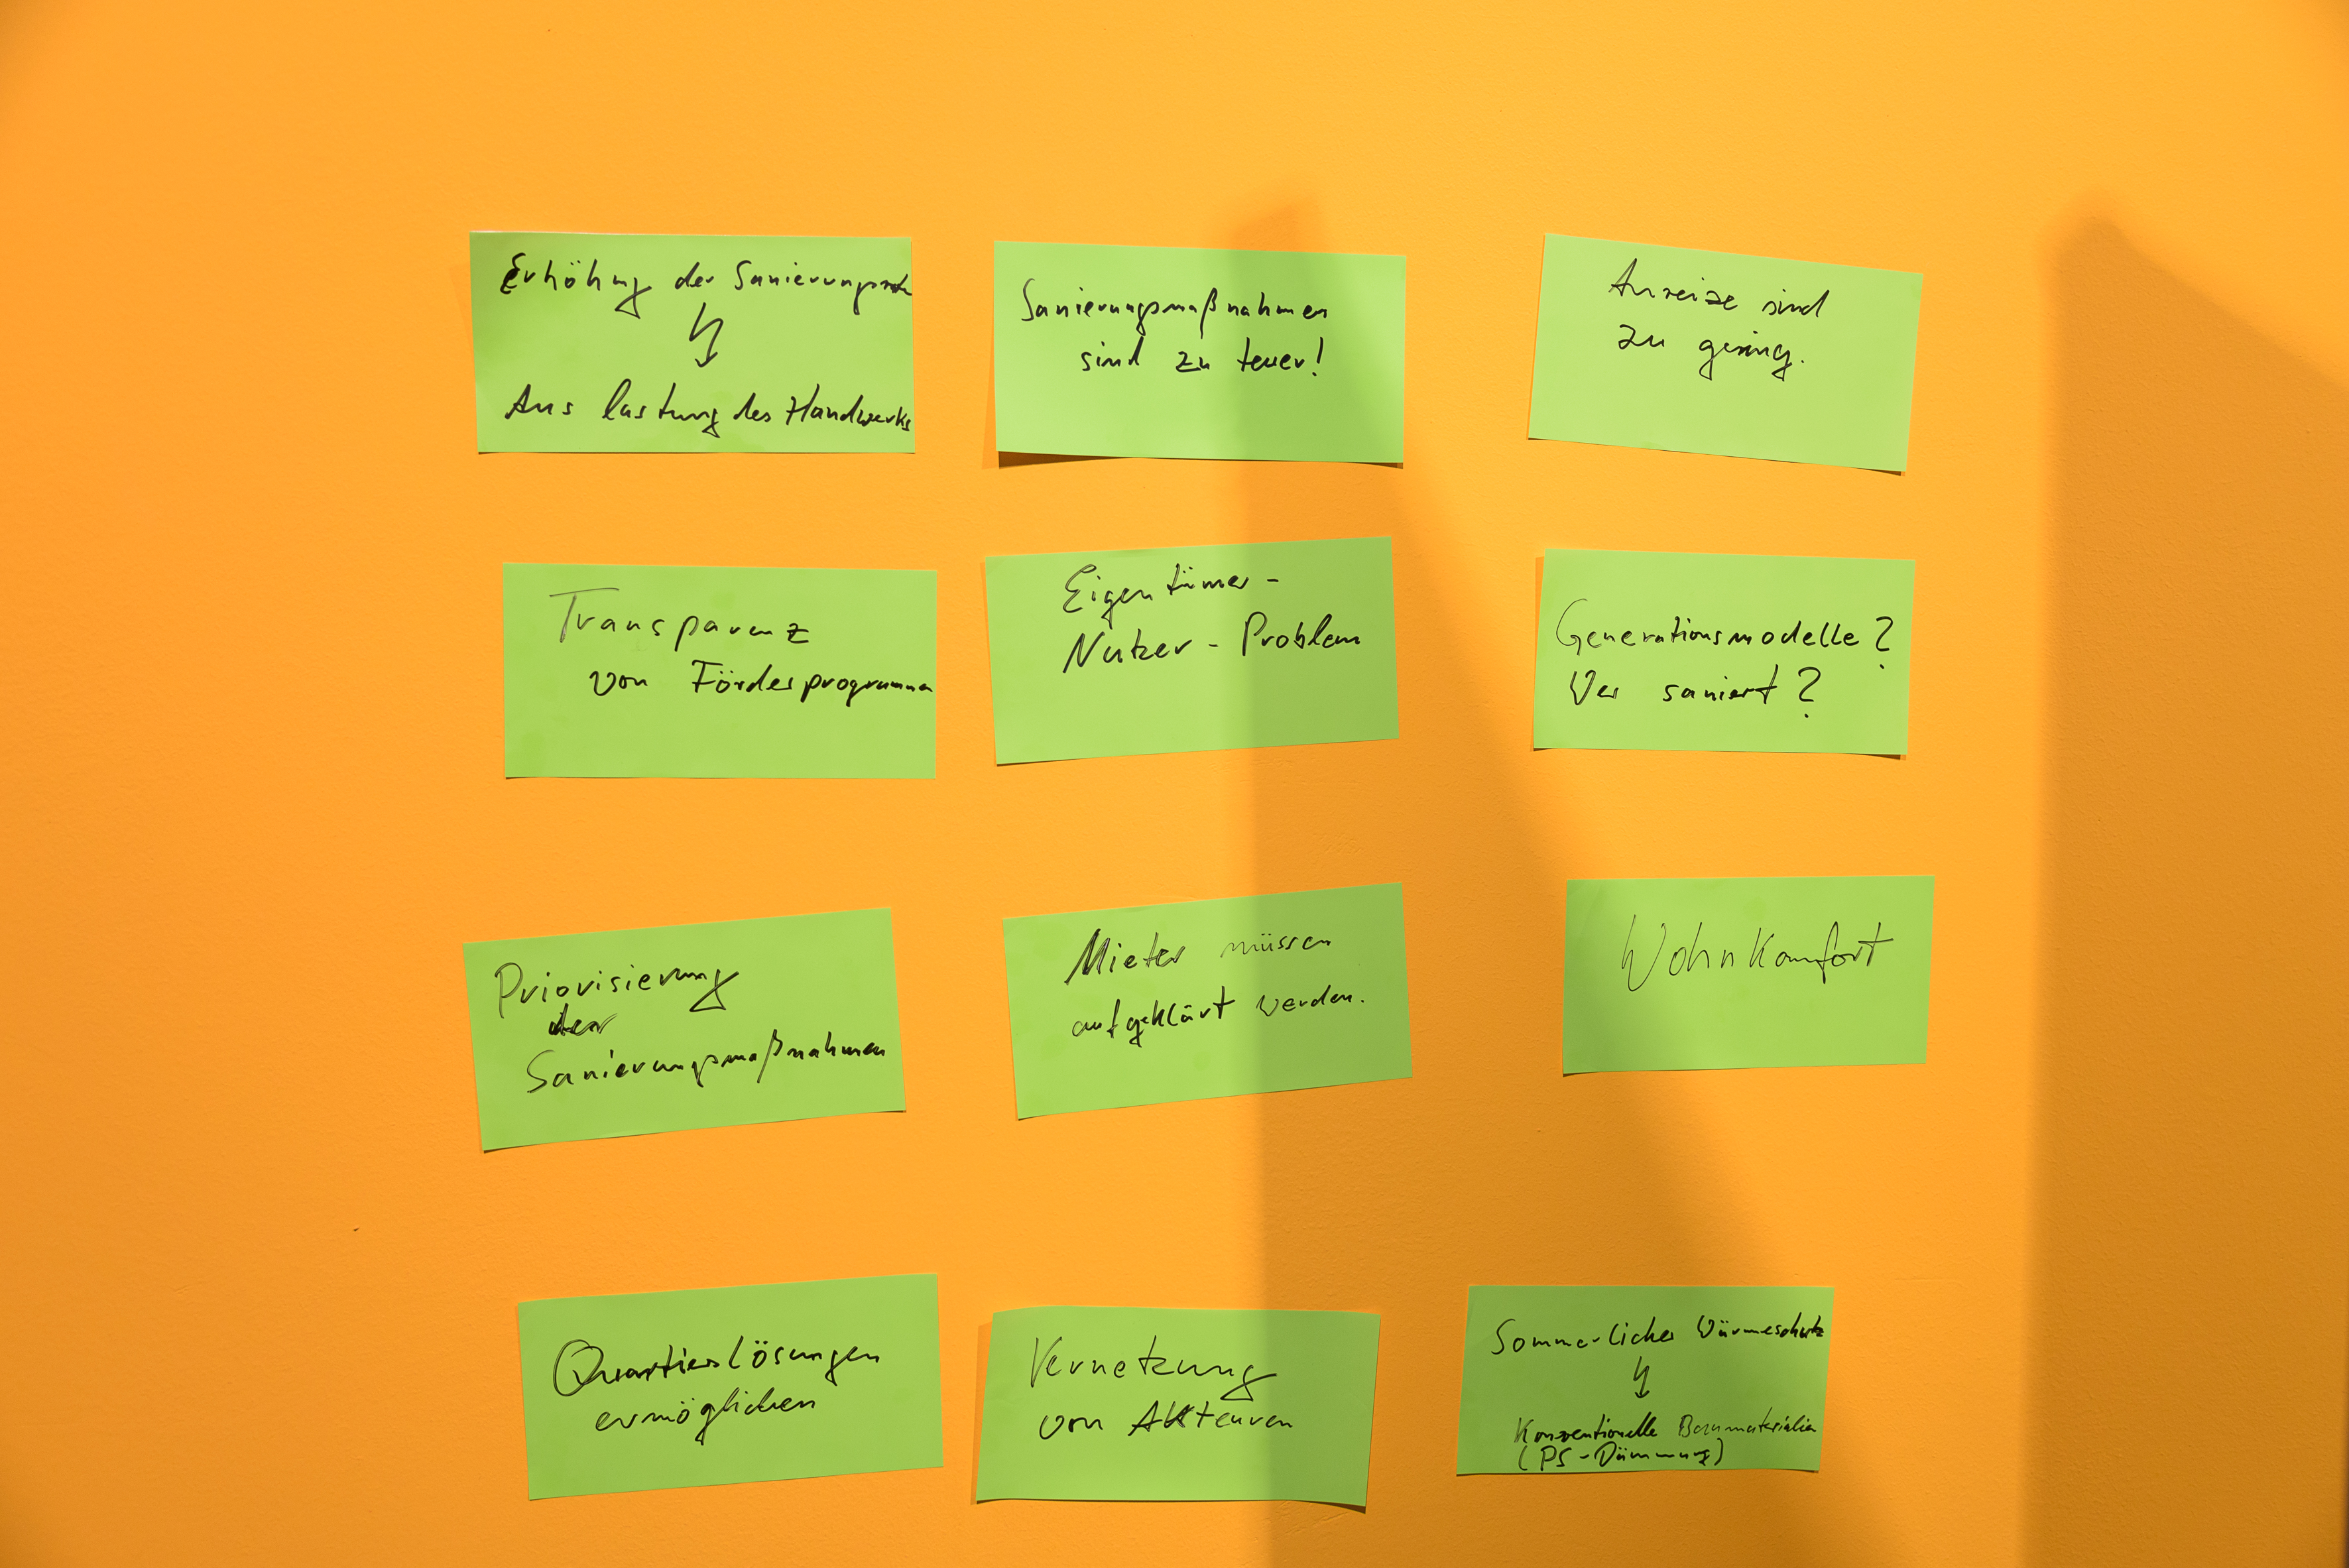 Erhöhung der Sanierungsrate
Auslastung des Handwerks
Sanierungsmaßnahmen
sind zu teuer!
Anreize sind
zu gering.
Transparenz
von Förderprogrammen
Eigentümer-
Nutzer-Problem
Generationsmodelle?
Wer saniert?
Priorisierung
der
Sanierungsmaßnahmen
Mieter müssen
aufgeklärt werden.
Wohnkomfort
Quartierslösungen
ermöglichen
Vernetzung
von Akteuren
Sommerlicher Wärmeschutz
Konventionelle Baumaterialien
(PS-Dämmung)